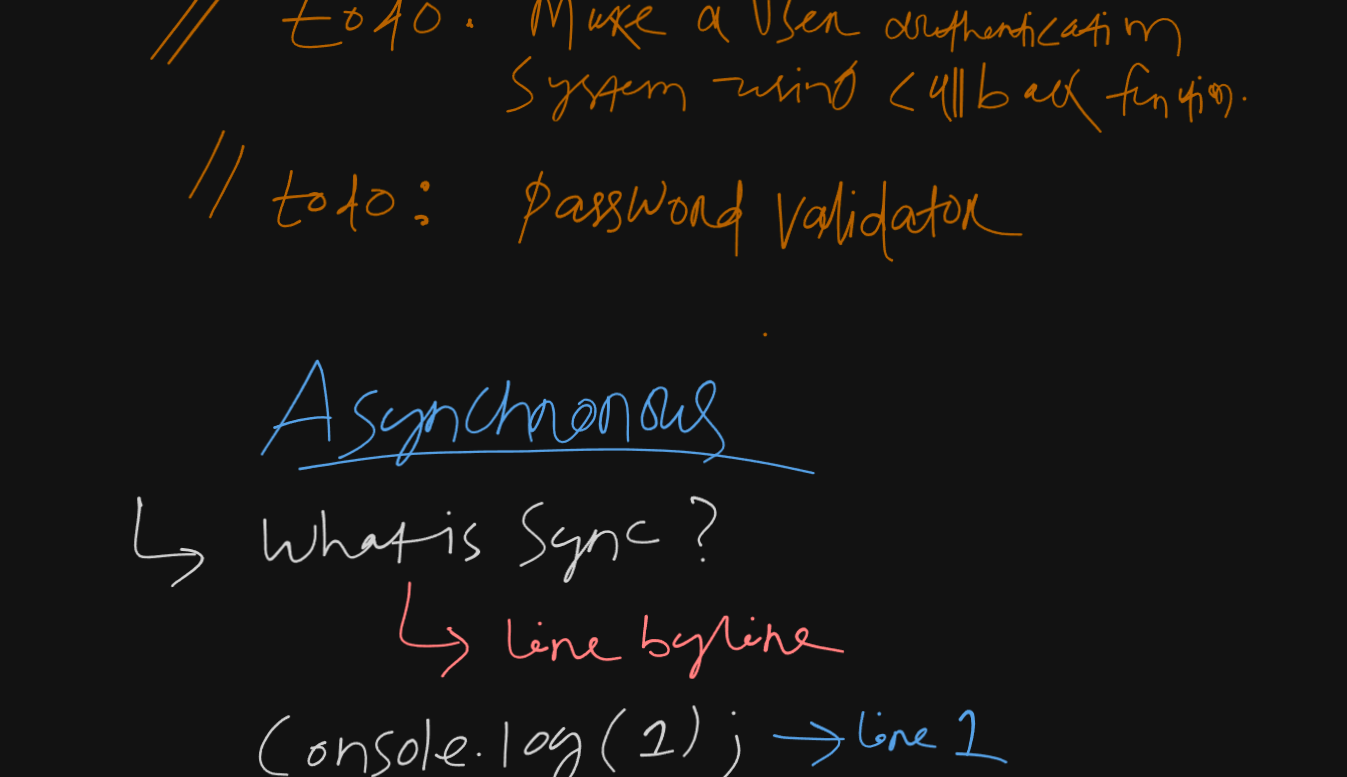 // todo: Make a User authentication
System using callback function.
// todo: Password validator
Asynchronous
What is Sync?
line by line
Console.log(1); → line 1